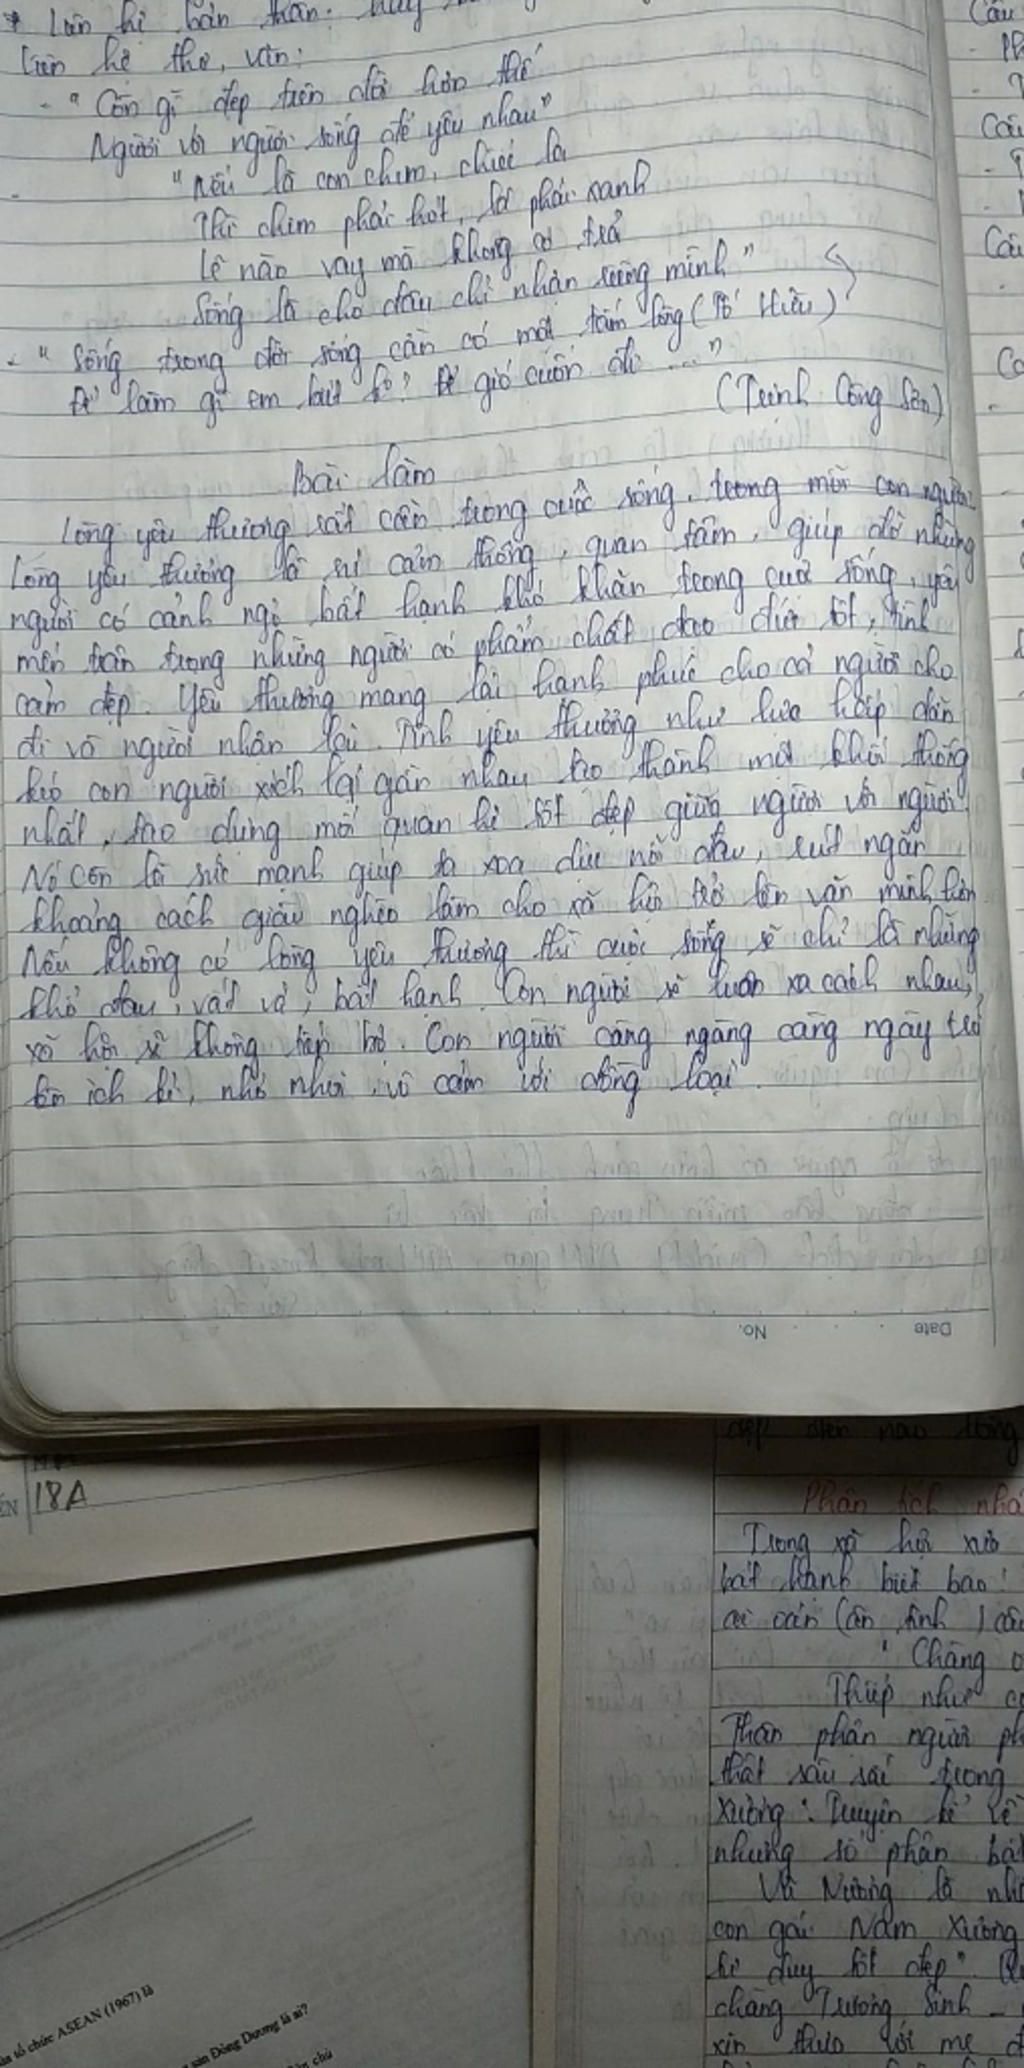 * Liên hệ bản thân: hãy
Liên hệ thơ, văn:
- "Còn gì đẹp trên đời hơn thế
Người với người sống để yêu nhau"
- "Nếu là con chim, chiếc lá
Thì chim phải hót, lá phải xanh
Lẽ nào vay mà không có trả
Sống là cho đâu chỉ nhận riêng mình"
(Tố Hữu)
- "Sống trong đời sống cần có một tấm lòng
Để làm gì em biết ko? Để gió cuốn đi ..."
(Trịnh Công Sơn)
Bài làm
Lòng yêu thương rất cần trong cuộc sống, trong mỗi con người.
Lòng yêu thương là sự cảm thông, quan tâm, giúp đỡ những
người có cảnh ngộ bất hạnh khó khăn trong cuộc sống, yêu
mến trân trọng những người có phẩm chất đạo đức tốt, tình
cảm đẹp. Yêu thương mang lại hạnh phúc cho cả người cho
đi và người nhận lại. Tình yêu thương như lực hấp dẫn
kéo con người xích lại gần nhau tạo thành một khối thống
nhất, tạo dựng mối quan hệ tốt đẹp giữa người với người.
Nó còn là sức mạnh giúp ta xoa dịu nỗi đau, rút ngắn
khoảng cách giàu nghèo làm cho xã hội trở lên văn minh hơn
Nếu không có lòng yêu thương thì cuộc sống sẽ chỉ là những
khổ đau, vất vả, bất hạnh. Con người sẽ luôn xa cách nhau,
xã hội sẽ không tiến bộ. Con người càng ngàng càng ngày trở
lên ích kỉ, nhỏ nhoi, vô cảm với đồng loại.
No.
Date
18A
Câu
Câu
đẹp nào
Phân tích
Trong xã hội xưa
bất hạnh biết bao!
ai oán (ân tình)
"Chàng
Thiếp như
Thân phận người
thật sâu sắc trong
Xương". Truyện kể về
nhưng số phận
Vũ Nương là
con gái Nam Xương
tư duy tốt đẹp".
chàng Trương Sinh -
xin với mẹ
tổ chức ASEAN (1967) là
sản Đông Dương là ai?
chủ